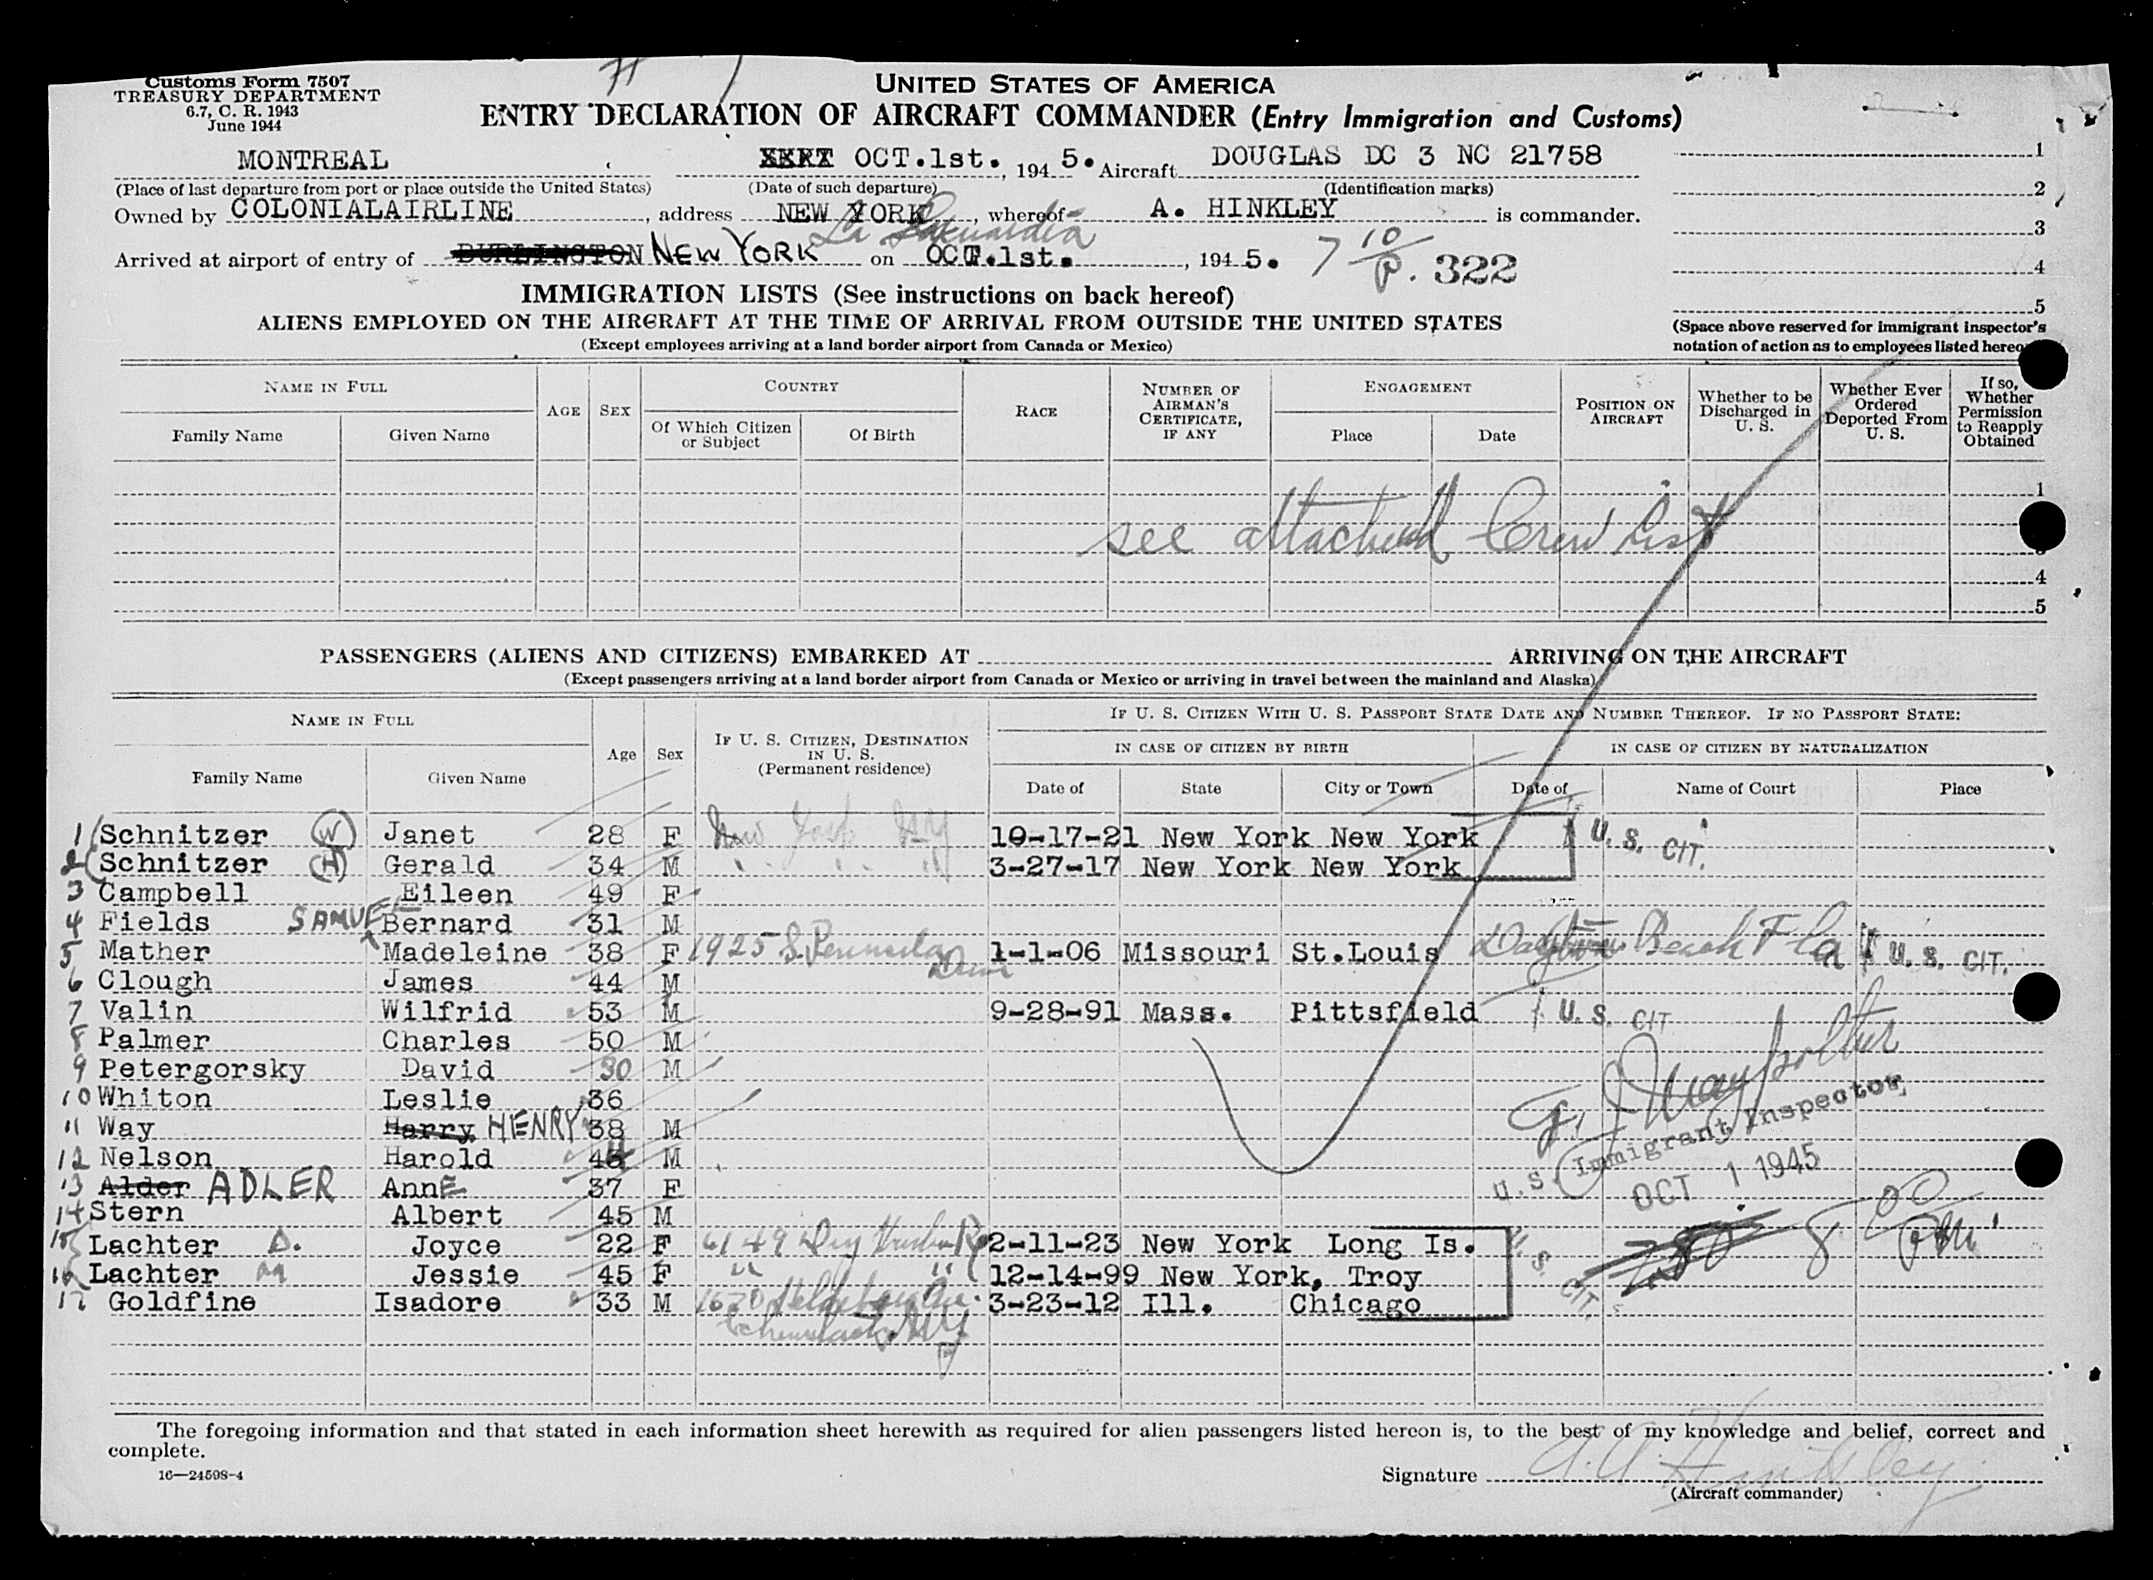 Customs Form 7507
TREASURY DEPARTMENT
6.7, C. R. 1943
June 1944
UNITED STATES OF AMERICA
ENTRY DECLARATION OF AIRCRAFT COMMANDER (Entry Immigration and Customs)
MONTREAL OCT.1st., 1945. Aircraft DOUGLAS DC 3 NC 21758
(Place of last departure from port or place outside the United States) (Date of such departure) (Identification marks)
Owned by COLONIALAIRLINE, address NEW YORK, whereof A. HINKLEY is commander.
La Guardia
Arrived at airport of entry of BURLINGTON NEW YORK on OCT.1st., 1945. 7 10/P. 322
1
2
3
4
5
(Space above reserved for immigrant inspector's
notation of action as to employees listed hereo
IMMIGRATION LISTS (See instructions on back hereof)
ALIENS EMPLOYED ON THE AIRCRAFT AT THE TIME OF ARRIVAL FROM OUTSIDE THE UNITED STATES
(Except employees arriving at a land border airport from Canada or Mexico)
NAME IN FULL AGE SEX COUNTRY RACE NUMBER OF AIRMAN'S CERTIFICATE, IF ANY ENGAGEMENT POSITION ON AIRCRAFT Whether to be Discharged in U. S. Whether Ever Ordered Deported From U. S. If so, Whether Permission to Reapply Obtained
Family Name Given Name Of Which Citizen or Subject Of Birth Place Date
1
see attached Crew List
4
5
PASSENGERS (ALIENS AND CITIZENS) EMBARKED AT ARRIVING ON THE AIRCRAFT
(Except passengers arriving at a land border airport from Canada or Mexico or arriving in travel between the mainland and Alaska)
NAME IN FULL Age Sex IF U. S. CITIZEN, DESTINATION IN U. S. (Permanent residence) IF U. S. CITIZEN WITH U. S. PASSPORT STATE DATE AND NUMBER THEREOF. IF NO PASSPORT STATE:
IN CASE OF CITIZEN BY BIRTH IN CASE OF CITIZEN BY NATURALIZATION
Family Name Given Name Date of State City or Town Date of Name of Court Place
1 Schnitzer (W) Janet 28 F New York NY 10-17-21 New York New York U. S. CIT.
2 Schnitzer (H) Gerald 34 M " " " 3-27-17 New York New York
3 Campbell Eileen 49 F
4 Fields SAMUEL Bernard 31 M
5 Mather Madeleine 38 F 1925 S. Peninsula Drive 1-1-06 Missouri St.Louis Daytona Beach Fla U. S. CIT.
6 Clough James 44 M
7 Valin Wilfrid 53 M 9-28-91 Mass. Pittsfield U. S. CIT
8 Palmer Charles 50 M
9 Petergorsky David 30 M
10 Whiton Leslie 36
11 Way Harry HENRY 38 M
12 Nelson Harold M
13 Alder ADLER ANNE 37 F
14 Stern Albert 45 M
15 Lachter D. Joyce 22 F 6149 2-11-23 New York Long Is. U. S. CIT.
16 Lachter M Jessie 45 F " " 12-14-99 New York, Troy
17 Goldfine Isadore 33 M 3-23-12 Ill. Chicago
Schenectady NY
U.S. Immigrant Inspector
OCT 1 1945
8 00/PM
The foregoing information and that stated in each information sheet herewith as required for alien passengers listed hereon is, to the best of my knowledge and belief, correct and
complete.
16—24598-4
Signature A. A. Hinkley
(Aircraft commander)